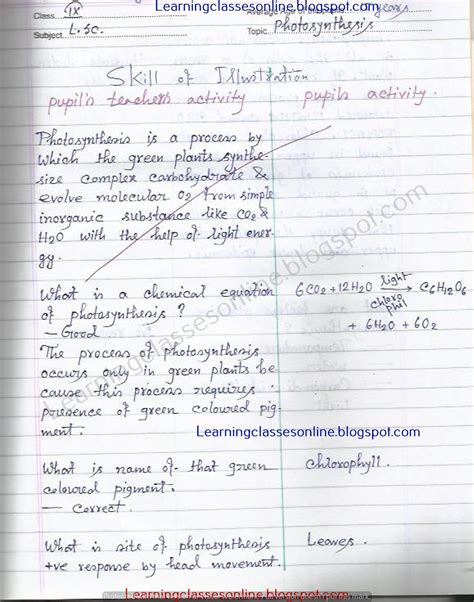 Learningclassesonline.blogspot.com
Class IX Average Age of the years
Subject L.Sc. Topic Photosynthesis
Skill of Illustration
pupil's teacher's activity pupil's activity.
Photosynthesis is a process by
which the green plants synthe-
size complex carbohydrate &
evolve molecular O2 from simple
inorganic substance like CO2 &
H2O with the help of light ener-
gy.
What is a chemical equation
of photosynthesis ?
— Good
6CO2+12H2O light C6H12O6
chloro
phil
+ 6H2O + 6O2
The process of photosynthesis
occurs only in green plants be
cause this process requires
presence of green coloured pig-
ment.
Learningclassesonline.blogspot.com
Learningclassesonline.blogspot.com
What is name of that green
coloured pigment.
— Correct.
chlorophyll.
What is site of photosynthesis
+ve response by head movement.
Leaves.
Learningclassesonline.blogspot.com